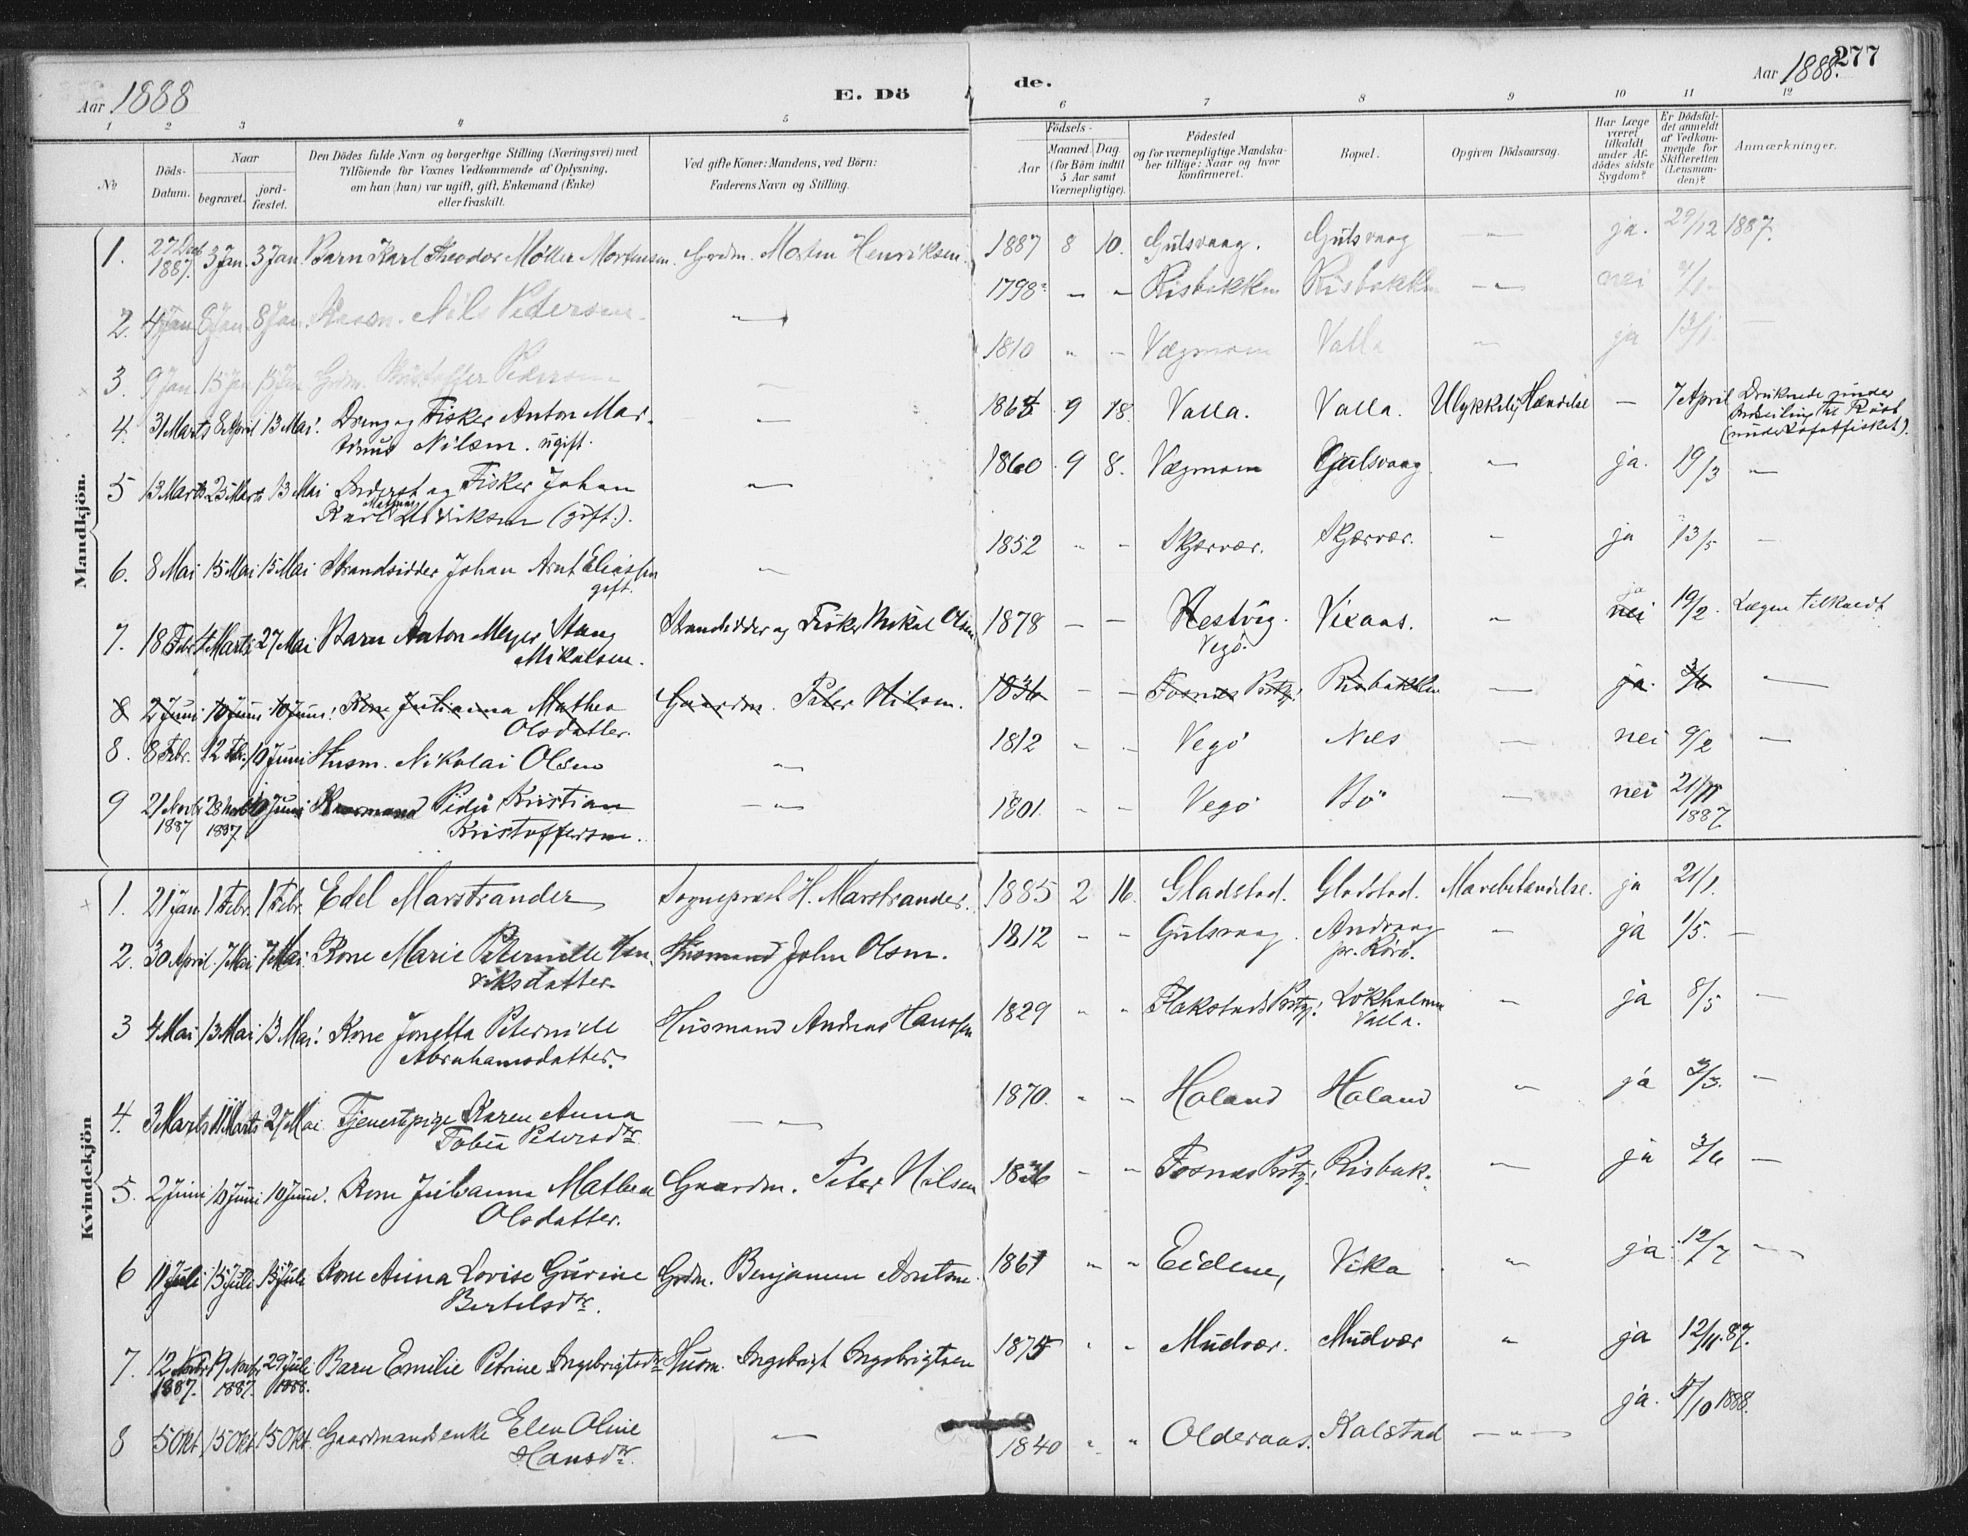 Aar 1888
E. Dö
de.
Aar 1888.
277
1 2 3 4 5 6 7 8 9 10 11 12
No
Döds-
Datum.
Naar
begravet.
jord-
fæstet.
Den Dödes fulde Navn og borgerlige Stilling (Næringsvei) med
Tilföiende for Voxnes Vedkommende af Oplysning,
om han (hun) var ugift, gift, Enkemand (Enke)
eller fraskilt.
Ved gifte Koner: Mandens, ved Börn:
Faderens Navn og Stilling.
Födsels-
Aar
Maaned. Dag.
(for Börn indtil
5 Aar samt
Værnepligtige).
Födested
og for værnepligtige Mandska-
ber tillige: Naar og hvor
konfirmeret.
Bopæl.
Opgiven Dödsaarsag.
Har Læge
været
tilkaldt
under Af-
dödes sidste
Sygdom?
Er Dödsfal-
det anmeldt
af Vedkom-
mende for
Skifteretten
(Lensman-
den)?
Anmærkninger.
Mandkjön.
1. 27 Dec 1887. 3 Jan. 3 Jan. Barn Karl Theodor Møller Mortensen. Gordm. Morten Henriksen. 1887 8 10. Gulsvaag. Gulsvaag — ja. 29/12 1887.
2. 4 Jan 8 Jan. 8 Jan. Nils Petersen. — 1798 — — Risbakken Risbakken — nei
3. 9 Jan 15 Jan 15 Jan Grdm. Kristoffer Pedersen — 1810 " — Vægmoen Valla " ja 13/1. —
4. 31 Marts 8 April 13 Mai. Dreng og Fisker Anton Mar-
tinus Nilsen. ugift. — 1864 9 18. Valla. Valla. Ulykkelig Hændelse — 7 April Druknede under
til Röst
(under Lofotfisket).
5 13 Marts 25 Marts 13 Mai og Fisker Johan
Karl Mathias Didriksen (gift.). — 1860 9 8. Vægmoen Gulsvaag " ja. 19/3 —
6. 8 Mai 15 Mai 15 Mai Strandsidder Johan Arnt Eliassen
gift. — 1852 " — Skjærvær. Skjærvær. " ja 13/5 —
7. 18 Febr 4 Marts 27 Mai Barn Anton Meyer Stang
Mikalsen. Strandsidder og Fisker Mikal Olsen 1878 — — Restvig. Vegö. Vixaas. " nei ja 19/2. Lægen tilkaldt
8 2 Juni 10 Juni 10 Juni. Kone Julianna Mathea
Olsdatter. Gaardm. Peter Nilsen. 1836 — — Fosnes Prstgj. Risbakken — ja. 3/6 —
8. 8 Febr. 12 Febr. 10 Juni Husm. Nikolai Olsen — 1812 " — Vegö Nes — nei 9/2 —
9 21 Novbr 1887 28 Novbr 1887. 10 Juni Peder Kristian
Kristoffersen. — 1801. — — Vegö Bö — nei 21/11 1887
Kvindekjön
1. 21 Jan. 1 Febr. 1 Febr. Edel Marstrander Sogneprest H. Marstrander. 1885 2 16. Gladstad. Gladstad. Mavebetændelse. ja 21/1.
2. 30 April. 7 Mai 7 Mai. Kone Marie Peternille Hen-
riksdatter Husmand John Olsen. 1812 — — Gulsvaag. Andvaag
pr. Rörö. " ja 1/5. —
3 4 Mai 13 Mai 13 Mai. Kone Jonetta Peternille
Abrahamsdatter. Husmand Andreas Hanssen 1829 " " Flakstads Prstgj. Lökholmen
Valla. " ja 8/5 —
4. 3 Marts 11 Marts 27 Mai Tjenestpige Karen Anna
Tobia Pedersdtr. — 1870. " " Holand Holand " ja 3/3. —
5. 2 Juni 10 Juni 10 Juni. Kone Julianna Mathea
Olsdatter. Gaardm. Peter Nilsen 1836 — " Fosnes Prstgj. Risbak. — ja 3/6 —
6 11 Juli 15 Juli 15 Juli Kone Anna Lovise Gurine
Bertelsdtr. Grdm. Benjamin Arntsen. 1861 " " Eidem, Vika " ja 12/7 —
7. 12 Novbr 1887. 19 Novbr 1887. 29 Juli 1888. Barn Emilie Petrine Ingebrigtsdtr Husm. Ingebrigt Ingebrigtsen 1875 " " Mudvær. Mudvær " ja 12/11.87.
8 5 Okt. 15 Okt. 15 Okt. Gaardmandsenke Elen Oline
Hansdtr. — 1840 " " Olderaas. Kalstad — ja. 5/10 1888.